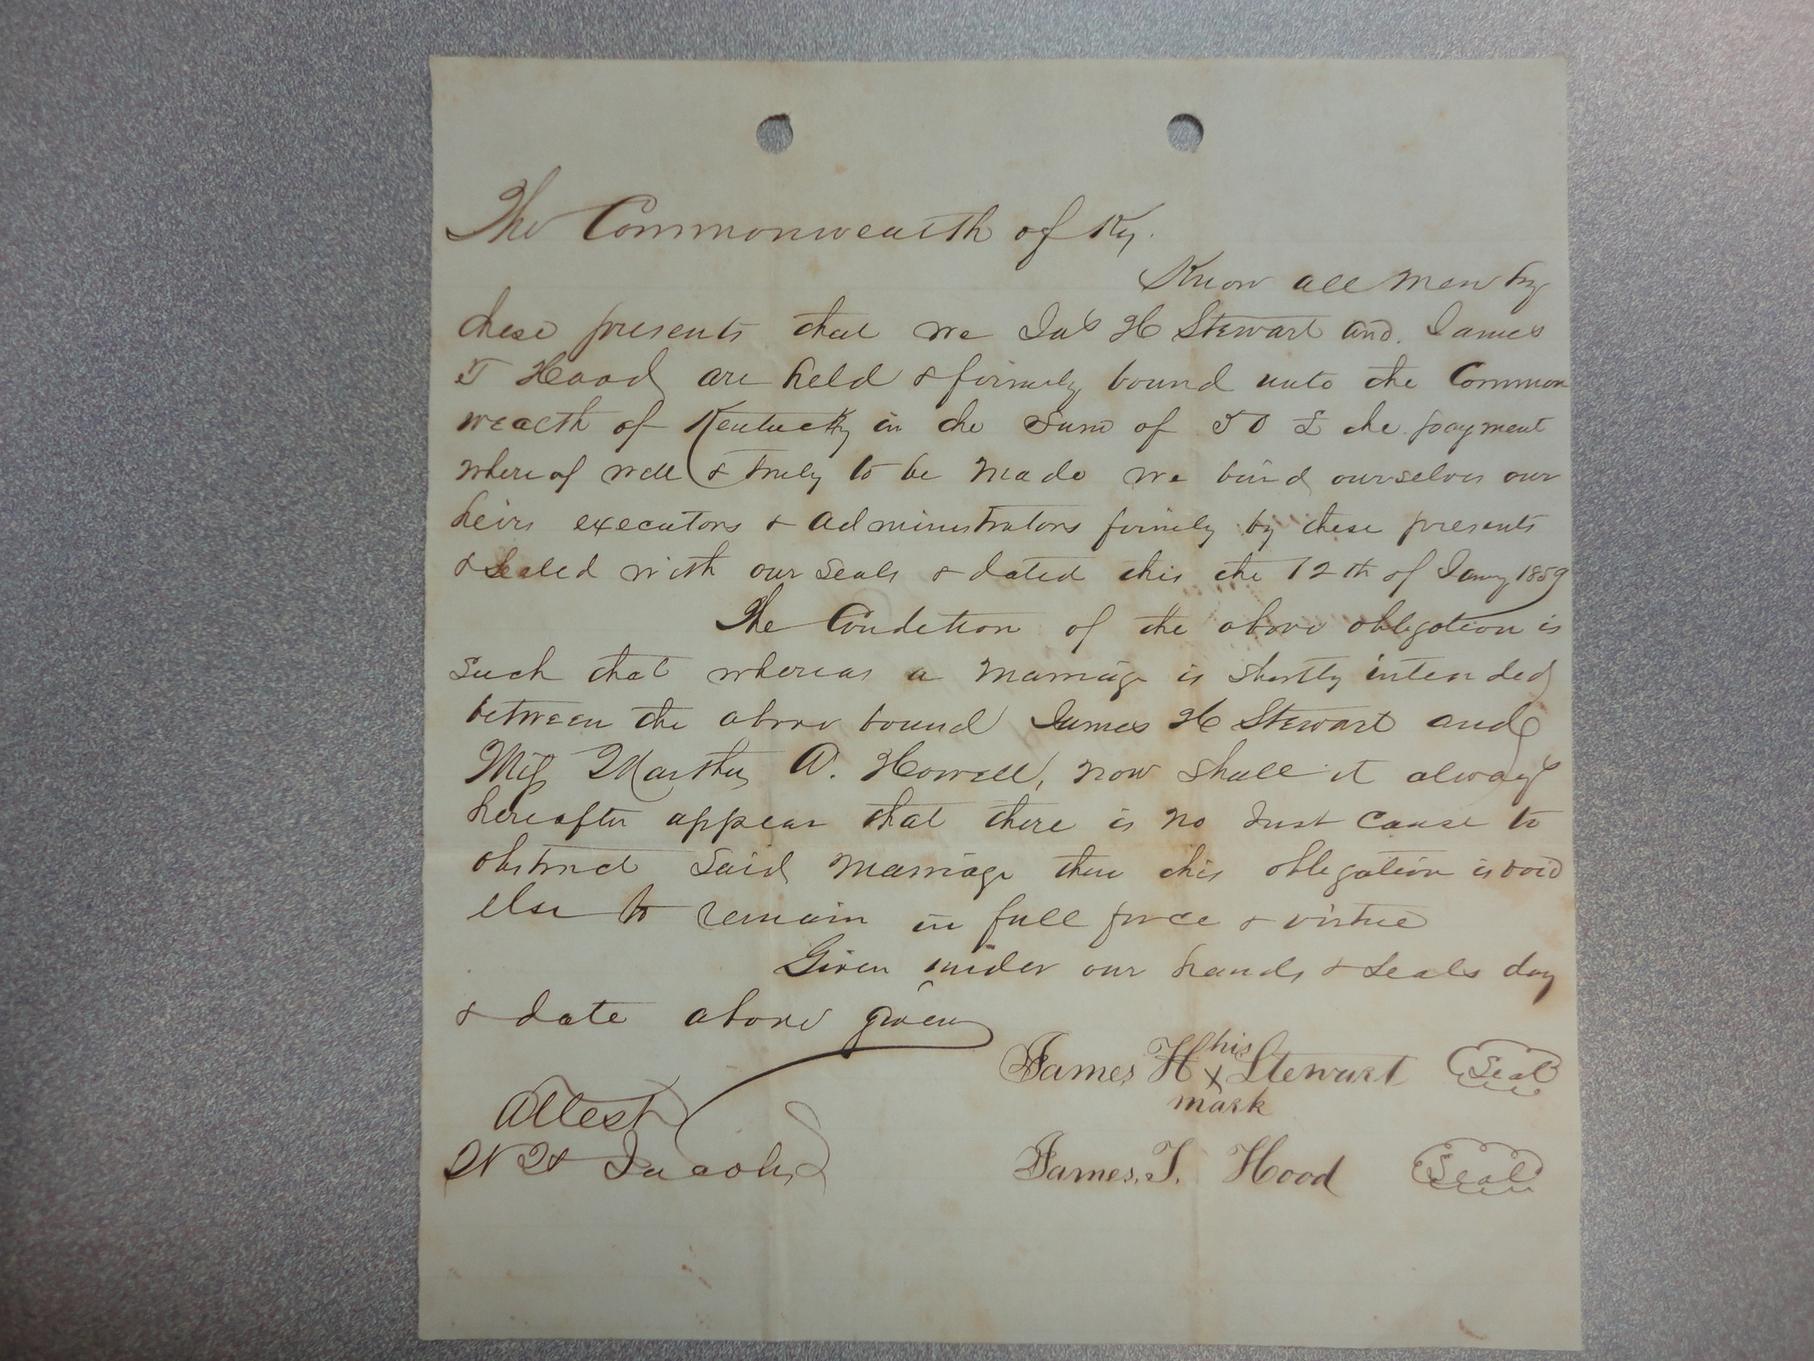 The Commonwealth of Ky.
Know all men by
these presents that we Jas H Stewart and James
T Hood are held & firmly bound unto the Common
wealth of Kentucky in the sum of 50 £ the payment
where of well & truly to be made we bind ourselves our
heirs executors & administrators firmly by these presents
& sealed with our seals & dated this the 12th of Jany 1859
The Condition of the above obligation is
such that whereas a marriage is shortly intended
between the above bound James H Stewart and
Miss Martha A. Howell, now shall it always
hereafter appear that there is no Just cause to
obstruct said marriage then this obligation is void
else to remain in full force & virtue
Given under our hands & seals day
& date above given
James H his Stewart Seal
x
mark
Attest
James. T. Hood Seal
Jacobs